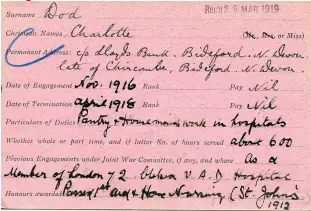 Surname Dod
Rec'd 9 MAR 1919
Christian Names Charlotte (Mr., Mrs. or Miss)
Permanent Address: c/o Lloyds Bank, Bideford. N. Devon
late of Chircombe, Bideford N. Devon.
Date of Engagement Nov. 1916 Rank Pay Nil
Date of Termination April 1918 Rank Pay Nil
Particulars of Duties Pantry & Housemaids work in hospitals
Whether whole or part time, and if latter No. of hours served about 600
Previous Engagements under Joint War Committee, if any, and where As a
Member of London 72 V.A.D Hospital
Honours awarded Passed 1st aid & Home Nursing (St. John's
1912